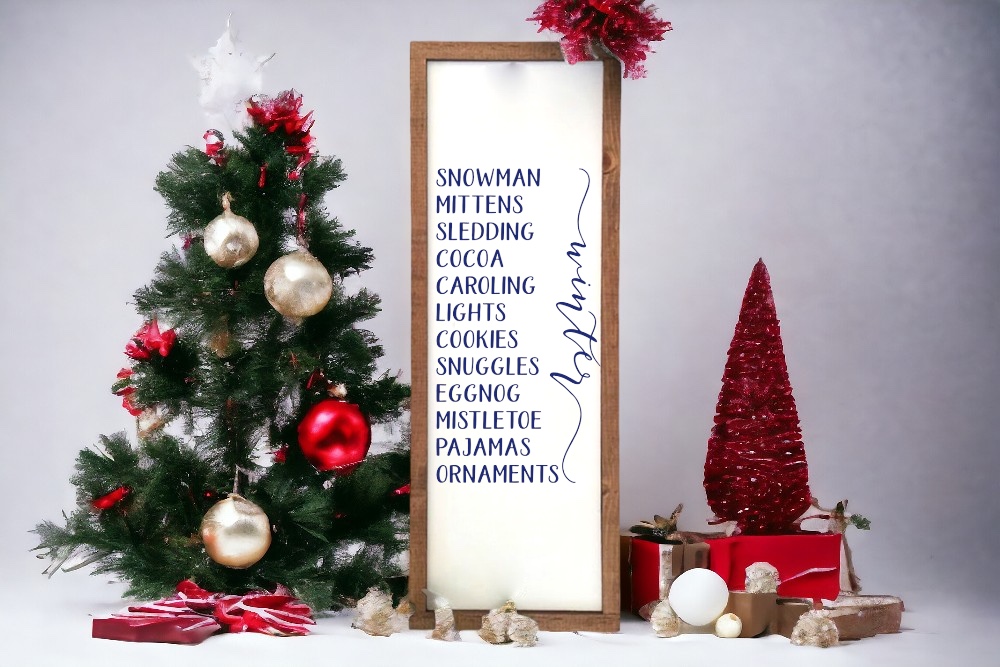 SNOWMAN
MITTENS
SLEDDING
COCOA
CAROLING
LIGHTS
COOKIES
SNUGGLES
EGGNOG
MISTLETOE
PAJAMAS
ORNAMENTS
winter